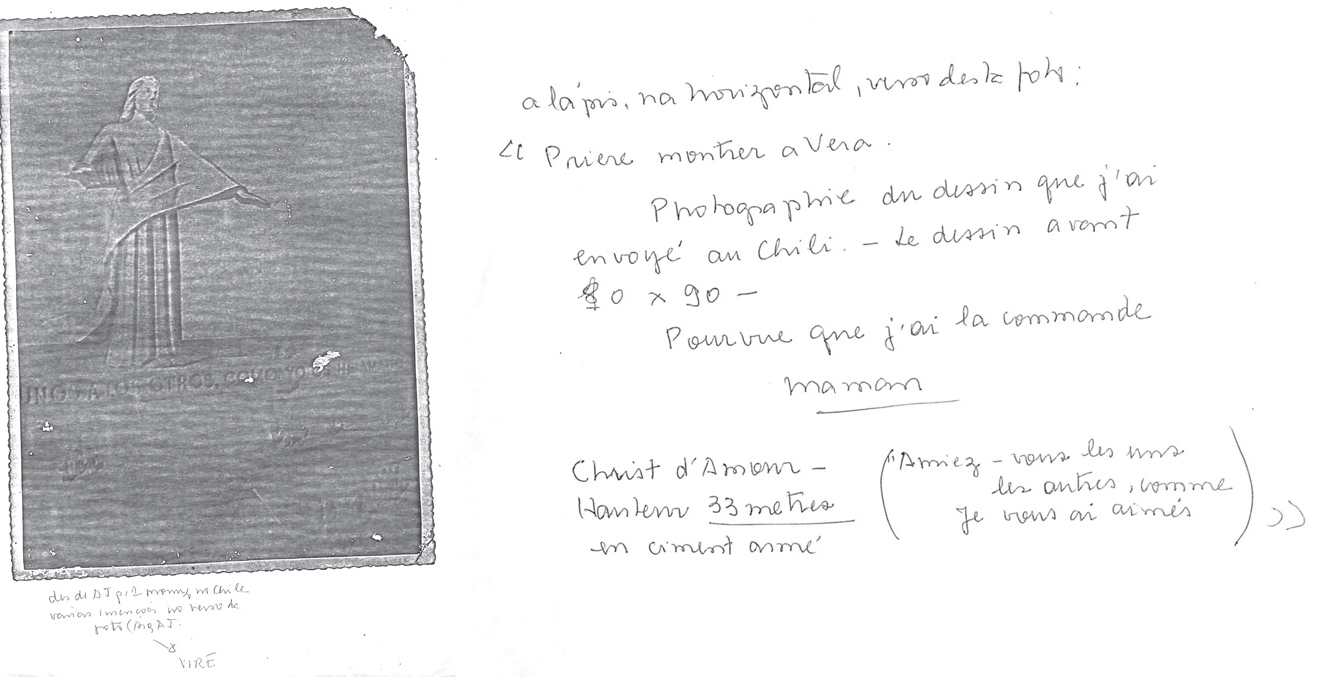 INOS A LOS OTROS, COMO YO OS HE AMADO
des de DJ p/1 monum, no Chile
varias inscrições no verso da
foto (Arq DJ.
VIRE
a lápis, na horizontal, verso desta foto:
<< Priere montrer a Vera.
Photographie du dessin que j'ai
envoyé au Chili. - Le dessin avant
80 x 90 -
Pourvue que j'ai la commande
maman
Christ d'Amour -
Hauteur 33 metres
en ciment armé
("Amiez - vous les uns
les autres, comme
Je vous ai aimés) >>